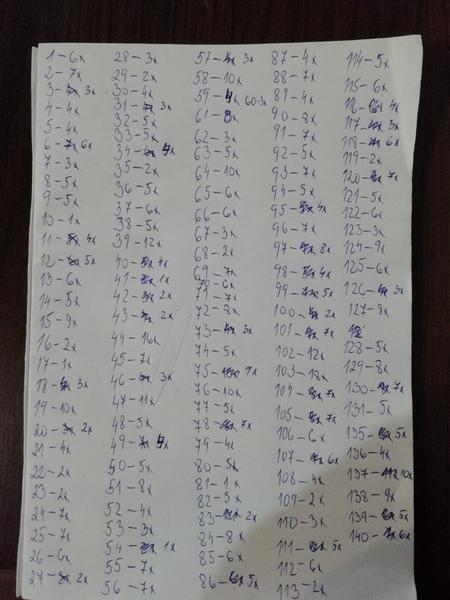 1-6x
2-7x
3- 3x
4-4x
5-4x
6- 6x
7-3x
8-5x
9-5x
10-1x
11- 4x
12- 5x
13-6x
14-5x
15-9x
16-2x
17-1x
18- 3x
19-10x
20- 2x
21-4x
22-2x
23-2x
24-7x
25-7x
26-6x
27- 2x
28-3x
29-2x
30-4x
31- 3x
32-5x
33-5x
34-
35-2x
36-5x
37-6x
38-5x
39-12x
40- 4x
41- 1x
42- 2x
43- 2x
44-16x
45-7x
46- 3x
47-11x
48-5x
49-
50-5x
51-8x
52-4x
53-3x
54- 1x
55-7x
56-7x
57- 3x
58-10x
59- 60-3x
61-8x
62-3x
63-5x
64-10x
65-6x
66-6x
67-3x
68-2x
69-7x
70-6x
71-7x
72-8x
73- 3x
74-5x
75- 9x
76-10x
77-5x
78- 7x
79-4x
80-5x
81-1x
82-5x
83- 2x
84-8x
85-6x
86- 5x
87-4x
88-7x
89-4x
90-8x
91-7x
92-5x
93-7x
94-5x
95- 4x
96-7x
97- 8x
98- 4x
99- 5x
100- 2x
101- 7x
102-12x
103-18x
104- 7x
105- 7x
106-6x
107- 6x
108-4x
109-2x
110-3x
111- 5x
112-6x
113-2x
114-5x
115-6x
116- 4x
117- 3x
118- 6x
119-2x
120- 7x
121-5x
122-6x
123-3x
124-9x
125-6x
126- 3x
127-8x
128-5x
129-8x
130- 7x
131-5x
135- 5x
136-4x
137- 10x
138-9x
139- 5x
140- 6x